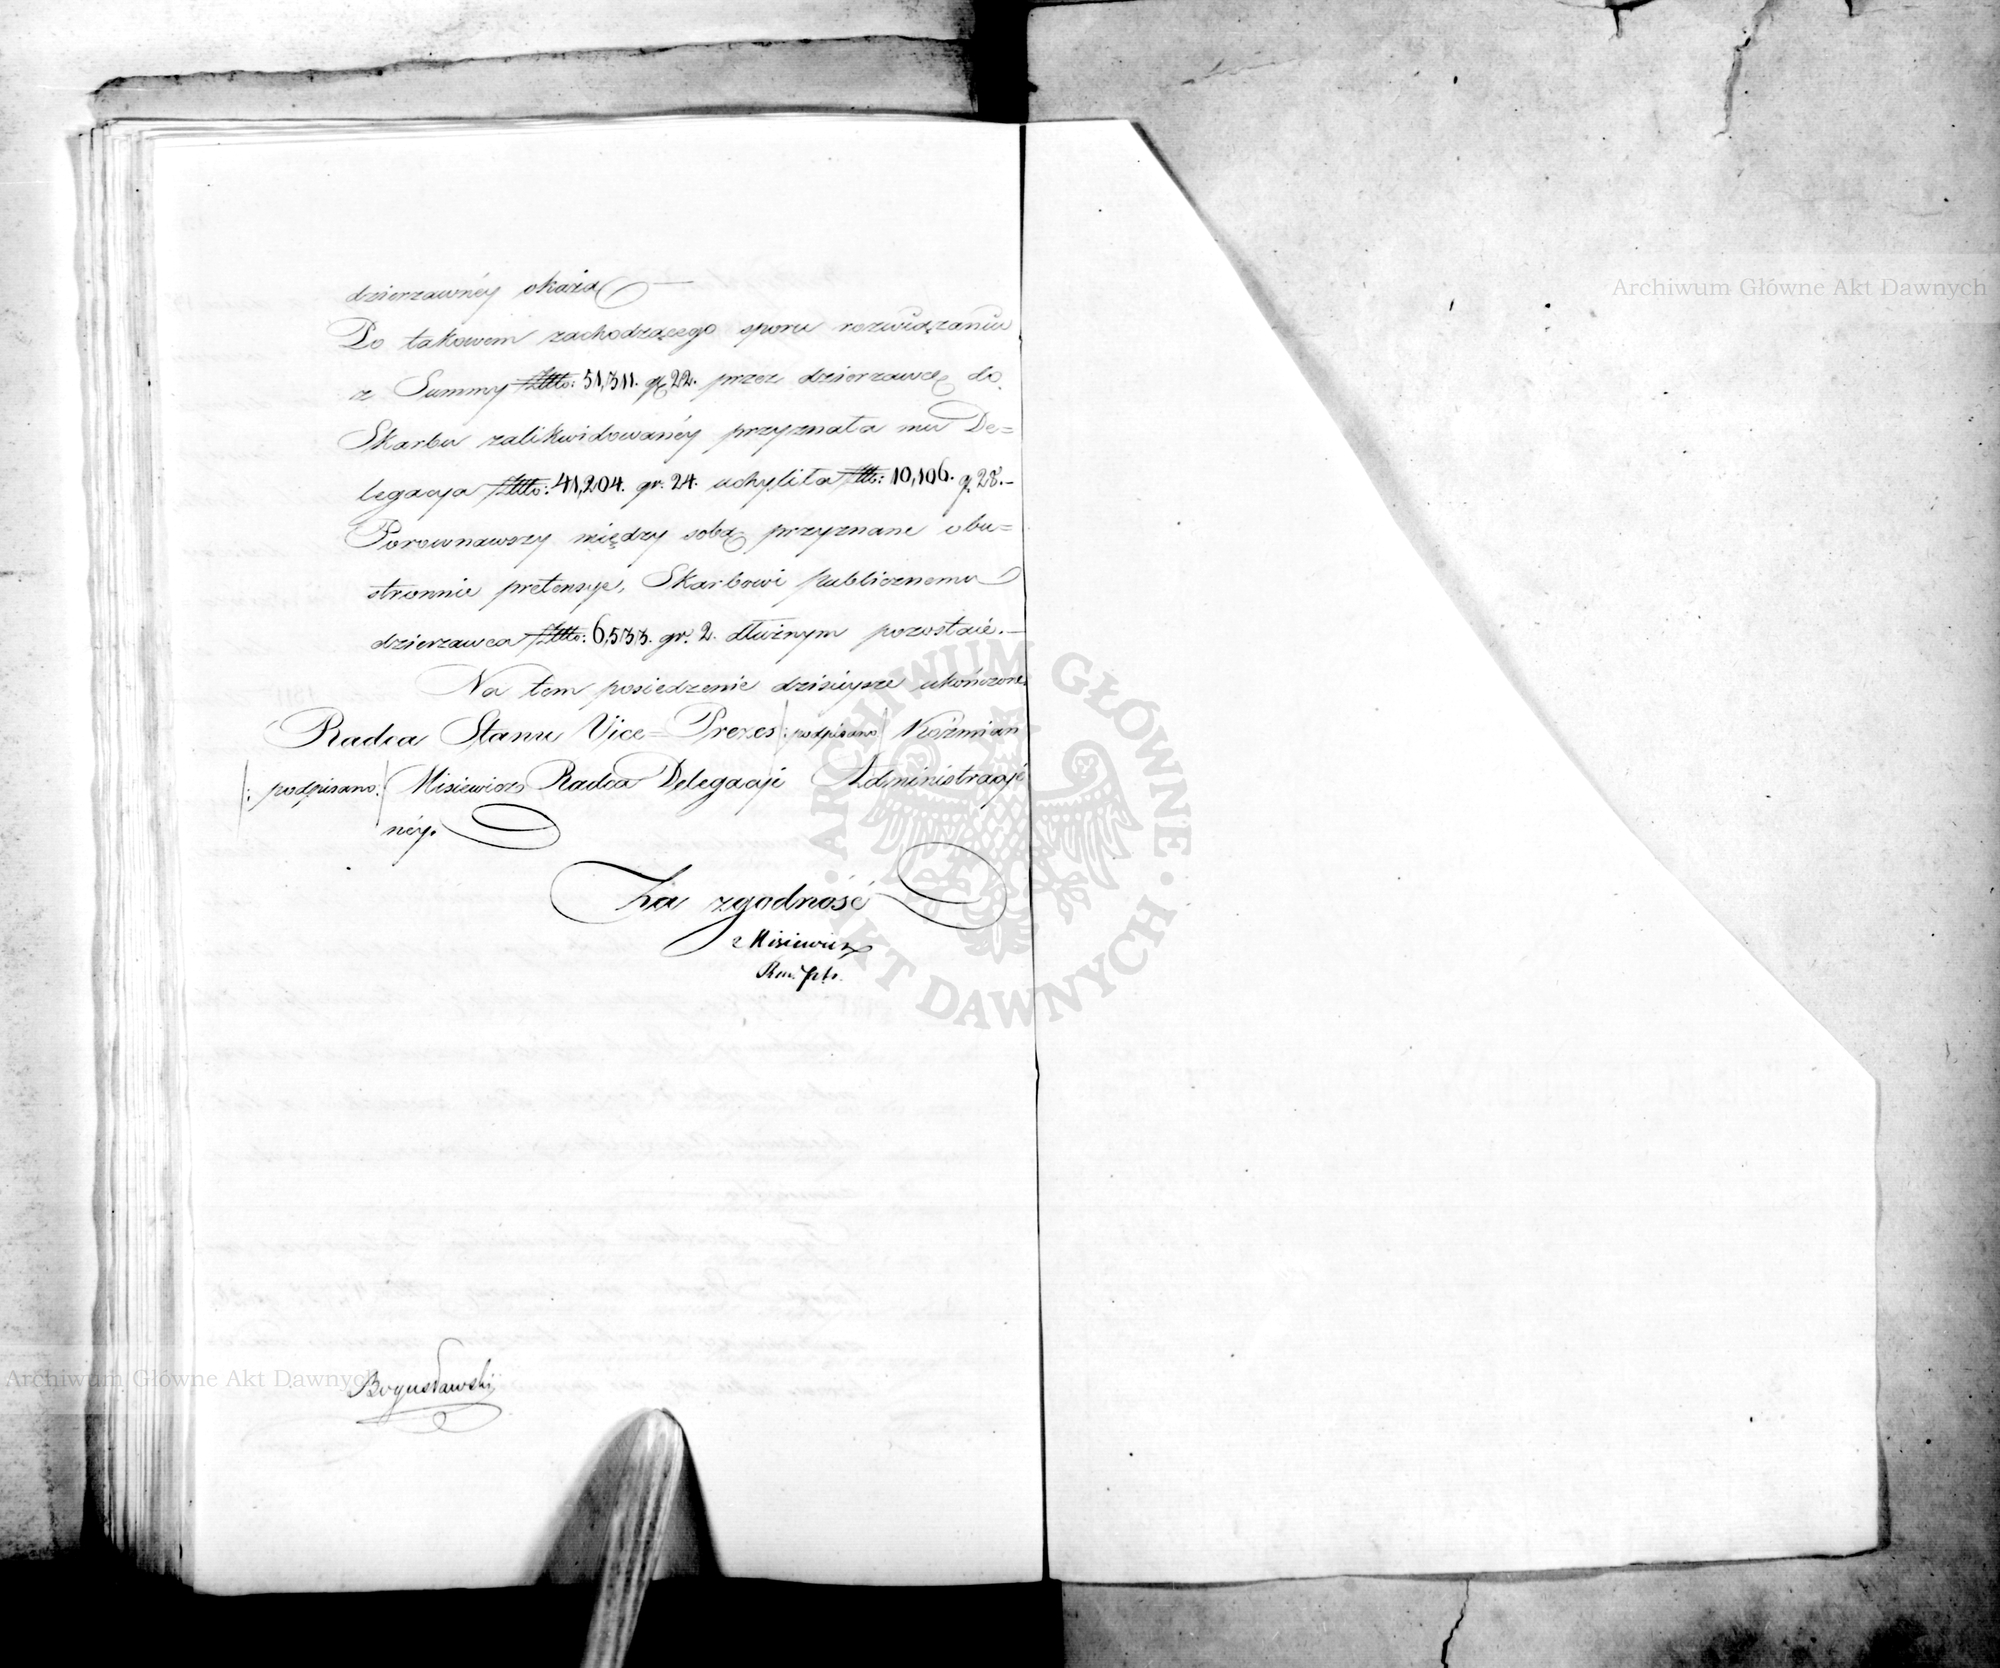 dzierzawnéy okaże
Po takowem zachodzącego sporu rozwiązaniu
z Summy Złtto: 51,311. gr 22. przez dzierzawcę do
Skarbu zalikwidowanéy przyznała mu De=
legacya Złtto: 41,204. gr. 24. uchyliła Złtto: 10,106. gr 28.–
Porownawszy między sobą przyznane obu=
stronnie pretensye, Skarbowi publicznemu
dzierzawca Złtto: 6,533. gr. 2. dłużnym pozostaie.–
Na tem posiedzenie dzisieysze ukończone
Radca Stanu Vice=Prezes /:podpisano/ Koźmian
/:podpisano:/ Misiewicz Radca Delegacji Administracyi
néy.
Za zgodność
Misiewicz
Bogusławski
Archiwum Główne Akt Dawnych
Archiwum Główne Akt Dawnych
ARCHIWUM GŁÓWNE AKT DAWNYCH